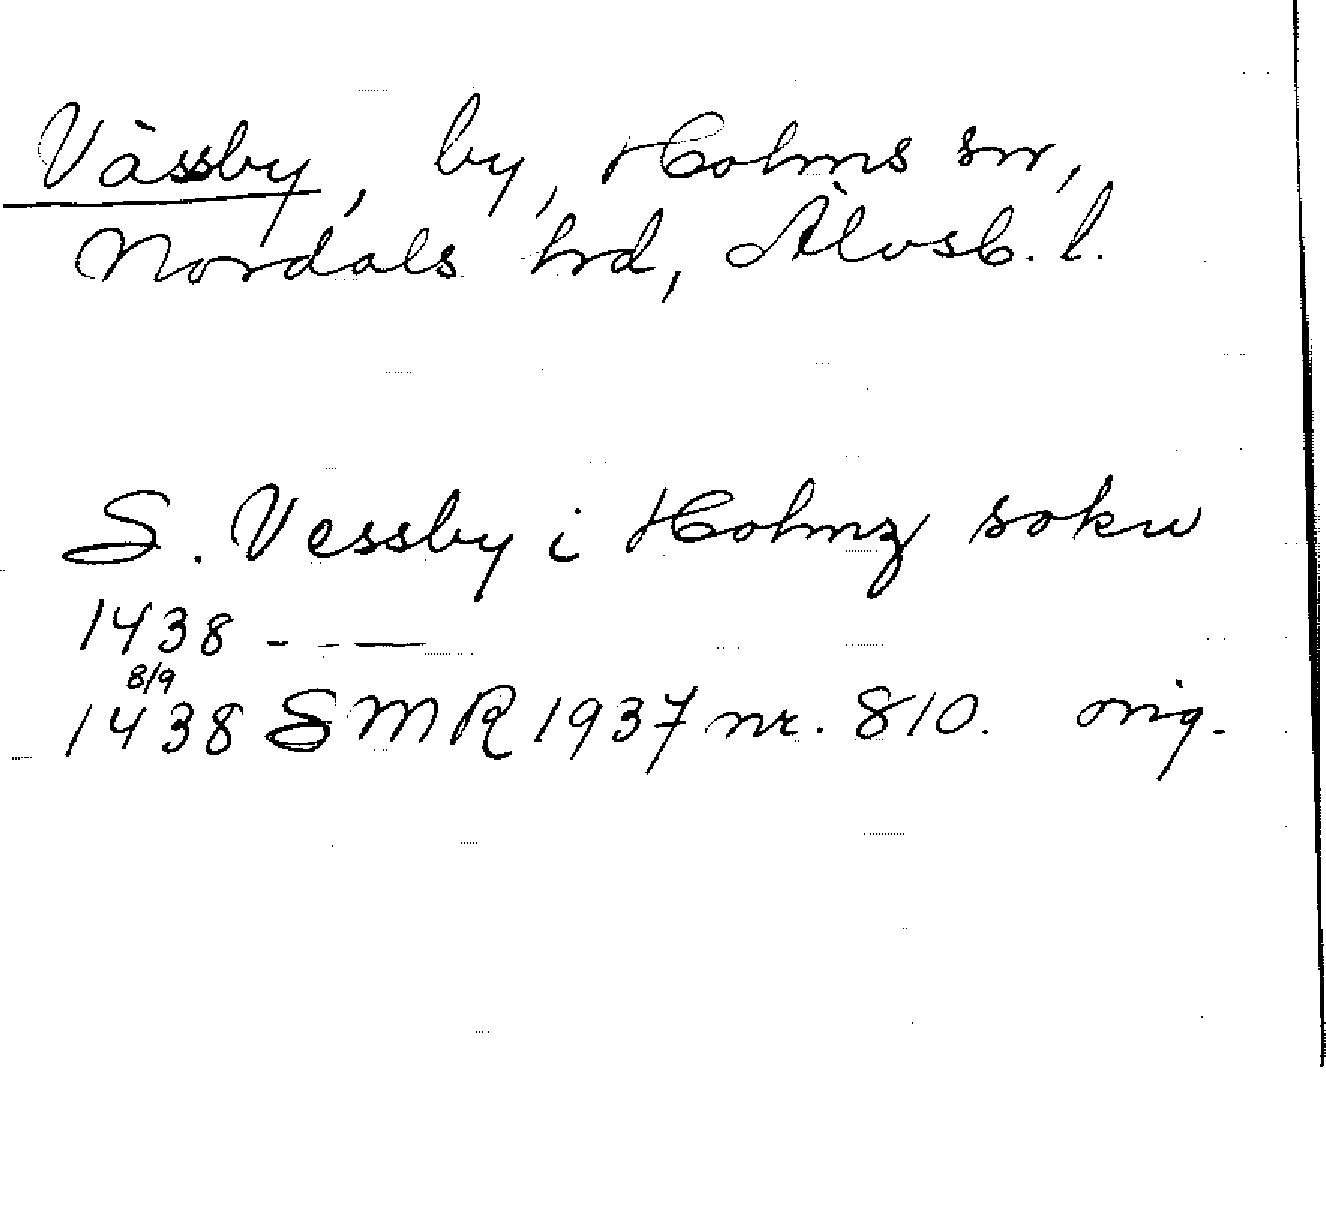 Vässby, by, Holms sn,
Nordals hrd, Älvsb. l.
S. Vessby i Holmz sokn
1438 - - —
8/9
1438 SMR 1937 nr. 810. orig.